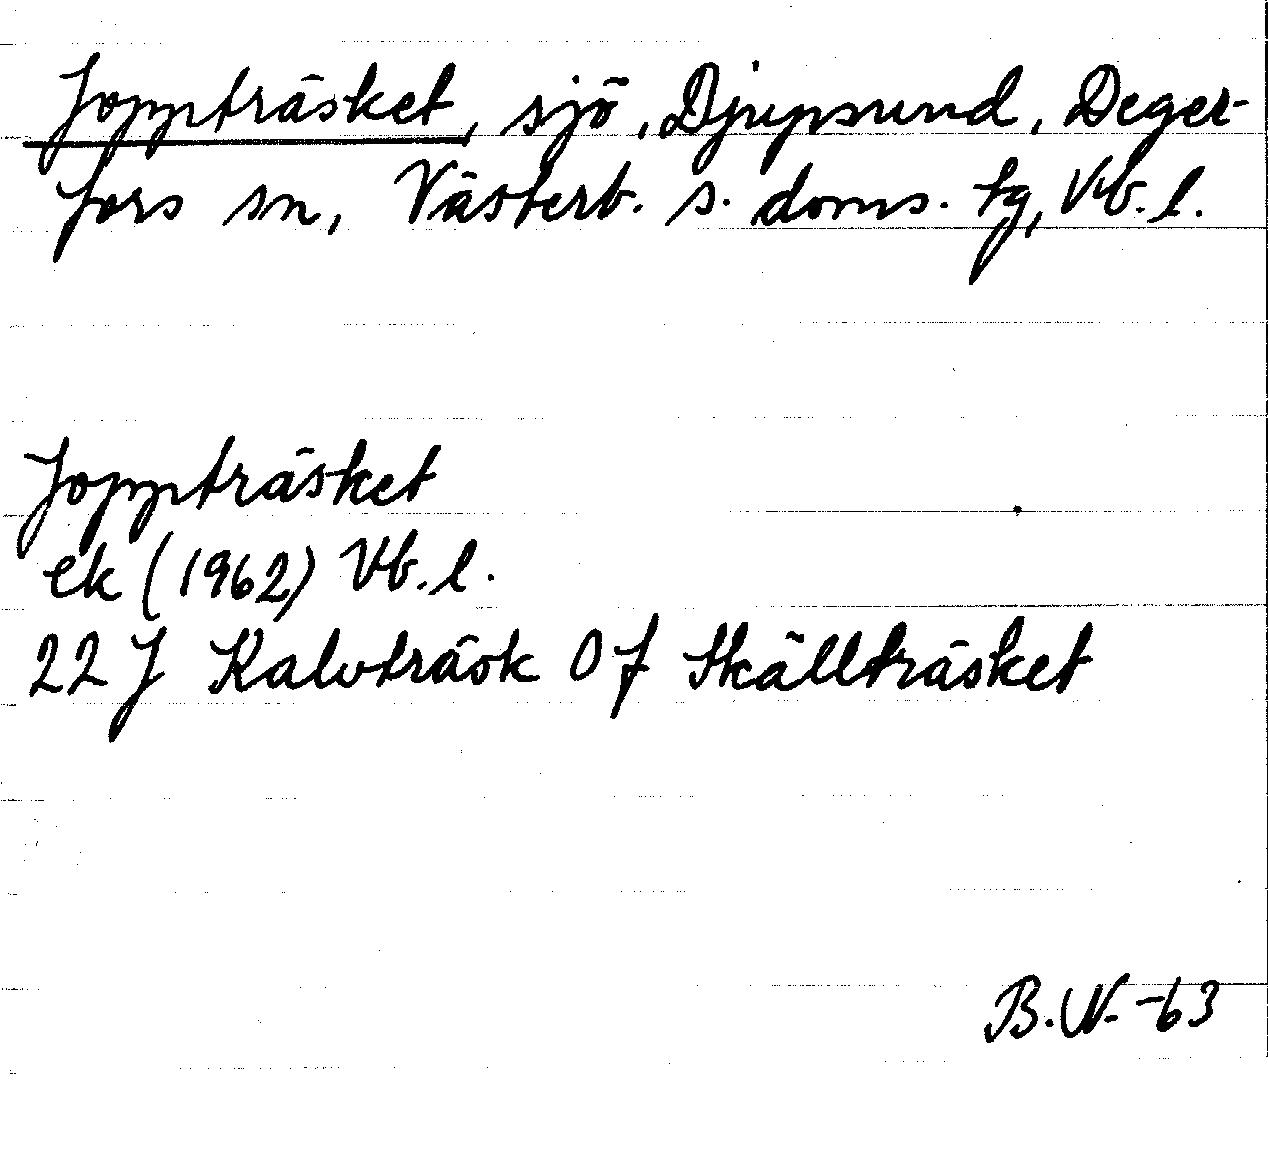 Joppträsket, sjö, Djupsund, Deger-
fors sn, Västerb. s. doms. tg, Vb. l.
Joppträsket
ek (1962) Vb. l.
22 J Kalvträsk 0 f Skällträsket
B.N. -63